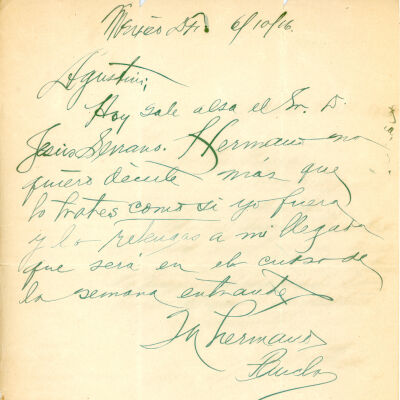 Mexico D.F. 6/10/16.
Agustin;
Hoy sale alsa el Sr. D.
Jesus Serrano. Hermano no
quiero decirte más que
lo trates como si yo fuera
y lo retengas a mi llegada
que será en el curso de
la semana entrante
Tu hermano